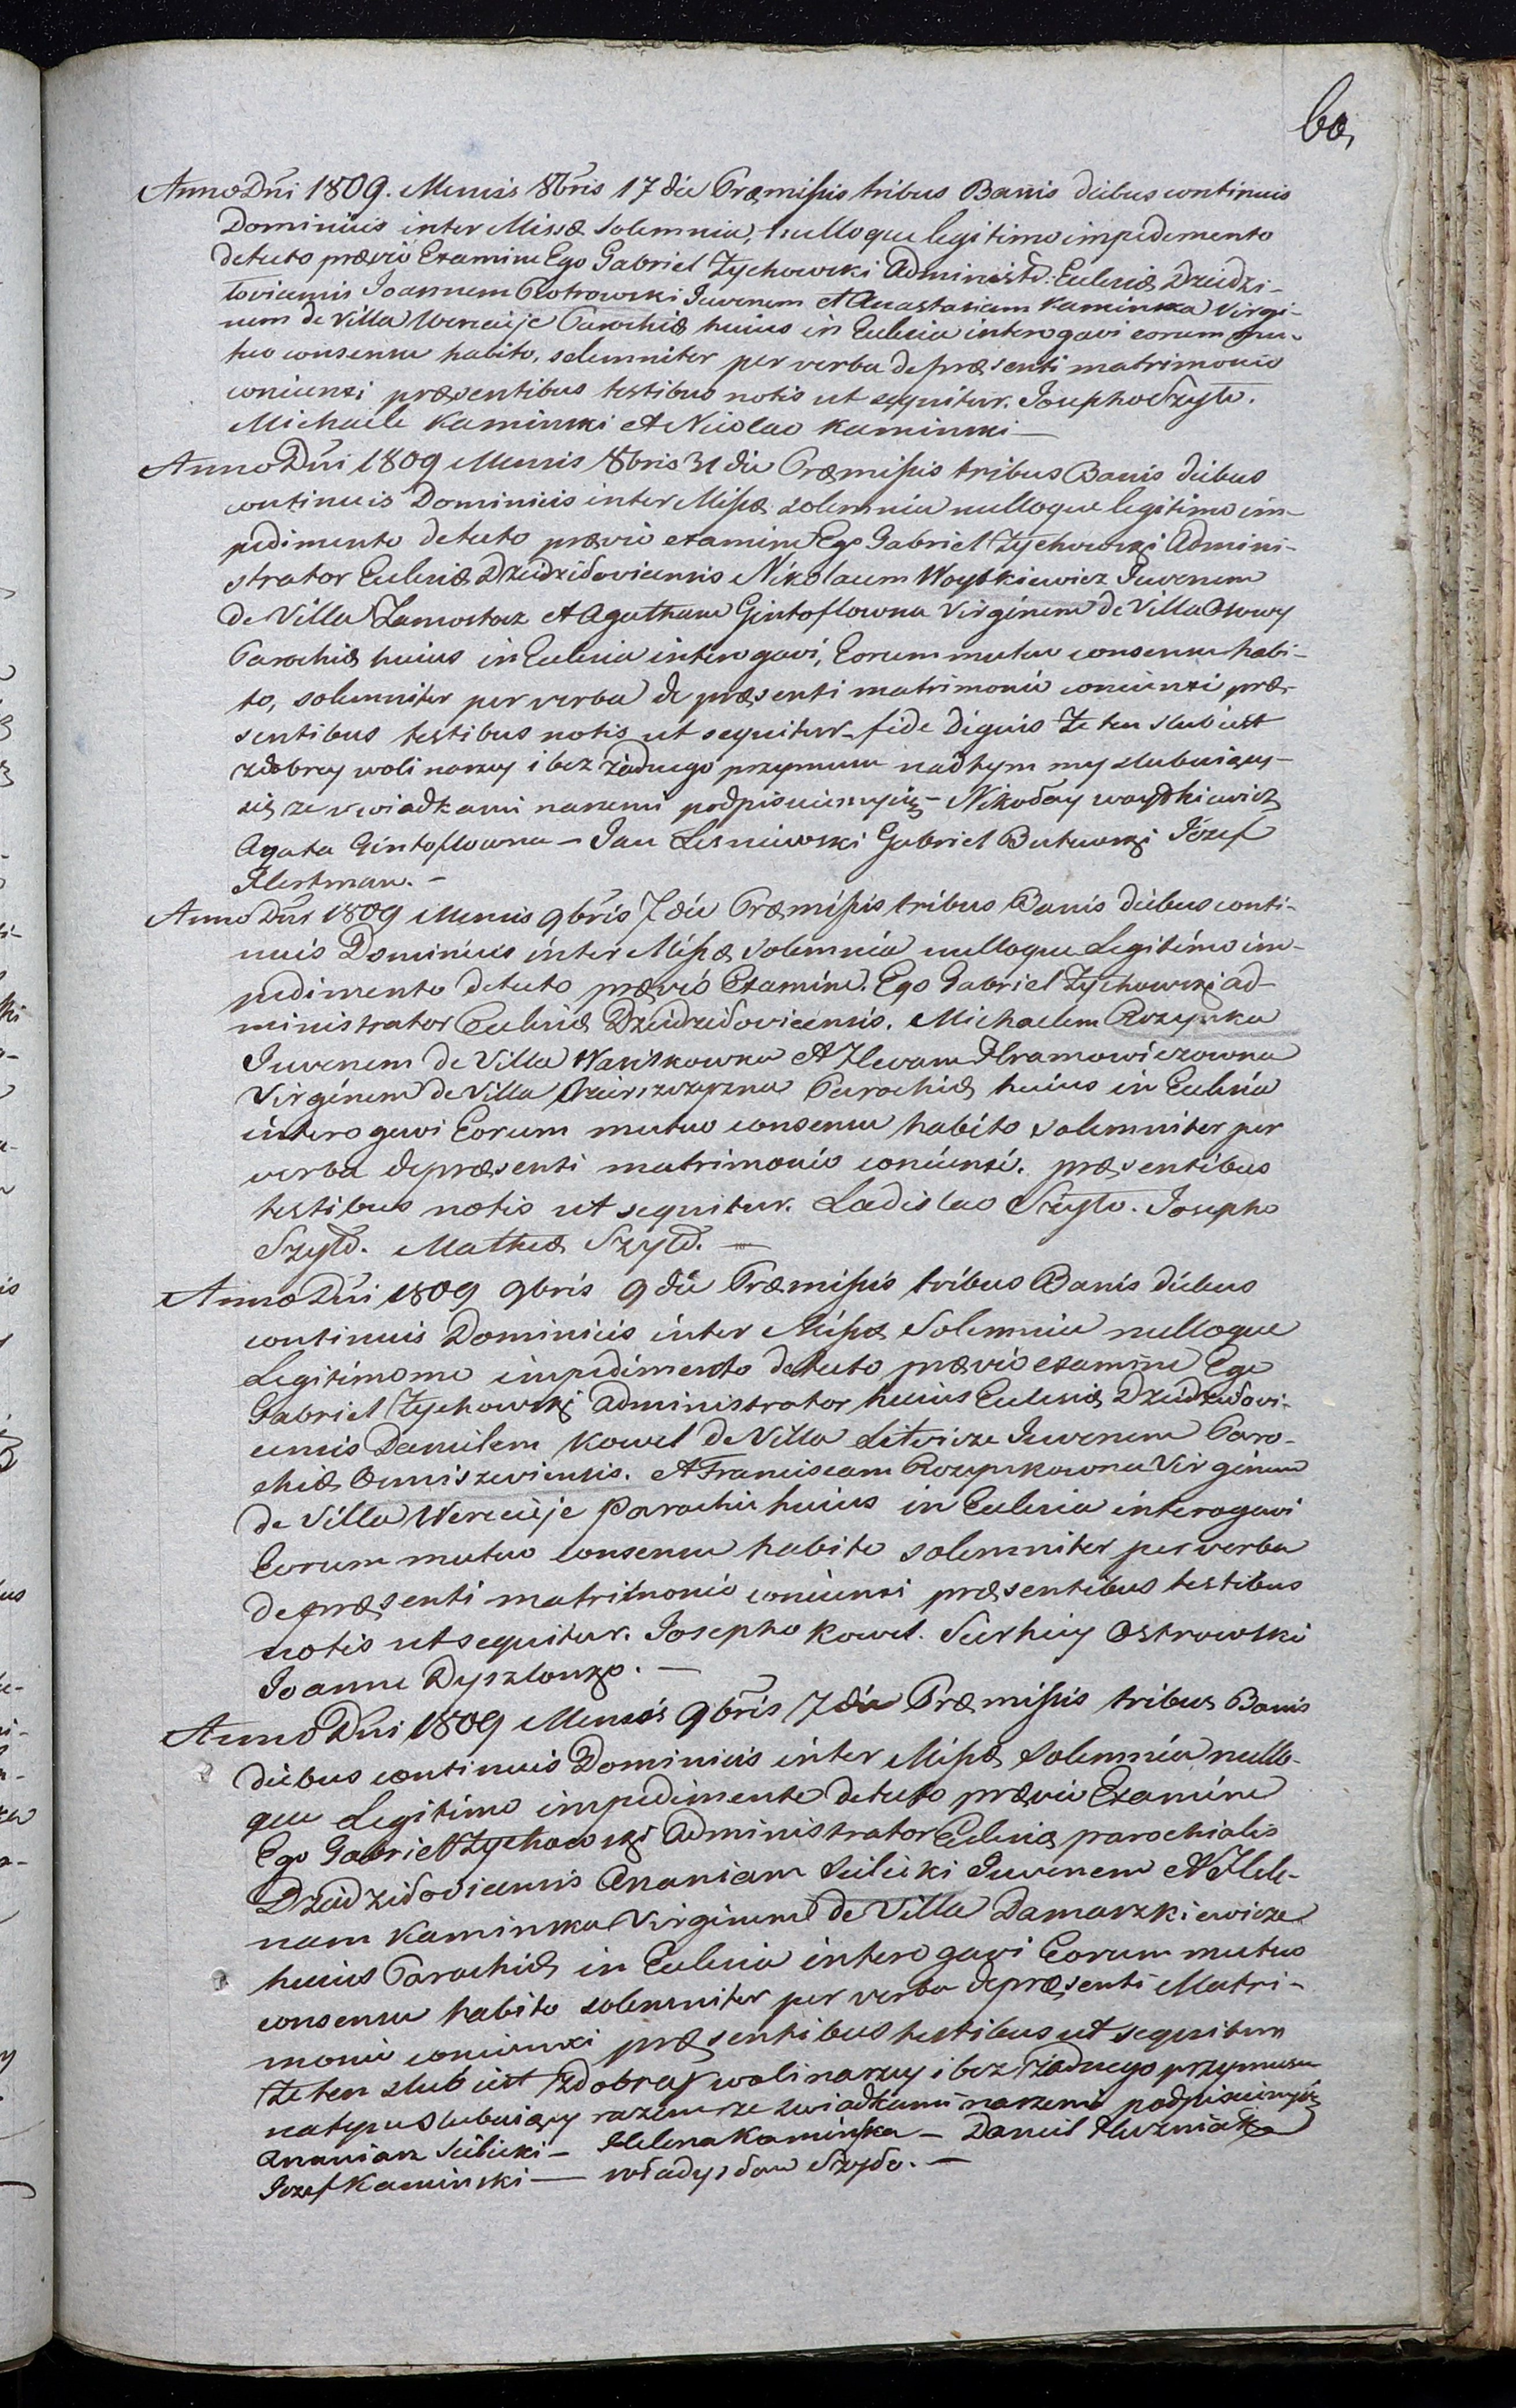 60,
Anno Dni 1809. Mensis 8bris 17 die Præmissis tribus Banis diebus continuis
Dominicis inter Missæ solemnia, nulloque legitimo impedemento
detecto prævio Examine Ego Gabriel Zychowski Administr: Ecclesiæ Dziedzi-
loviensis Joannem Piotrowski Juvenem et Anastasiam Kaminska Virgi-
nem de Villa Wereieje Parochiæ huius in Ecclesia interogavi eorum mu-
tuo consensu habito, solemniter per verba de præsenti matrimonio
coniunxi præsentibus testibus notis ut sequitur. Josepho Szydło.
Michaele Kaminski et Nicolao Kaminski —
Anno Dni 1809 Mensis 8bris 31 die Præmissis tribus Banis diebus
continuis Dominicis inter Missæ solemnia nulloque legitimo im-
pedimento detecto prævio examine Ego Gabriel Zychowski Admini-
strator Ecclesiæ Dziedziloviensis Nikolaum Woytkiewicz Juvenem
de Villa Zamostocz et Agatham Gintoflowna Virginem de Villa Osowy
Parochiæ huius in Ecclesia interogavi, Eorum mutuo consensu habi-
to, solemniter per verba de præsenti matrimonio coniunxi præ-
sentibus testibus notis ut sequitur fide dignis Ze ten slub iest
z dobrey woli naszey i bez żadnego przymusu nad tym my slubuiący-
się ze swiadkami naszemi podpisuiemy się — Nikołay Woytkiewicz
Agata Gintoflowna — Jan Lesniewski Gabriel Butewski Józef
Flertman. —
Anno Dni 1809 Mensis 9bris 7 die Præmissis tribus Banis diebus conti-
nuis Dominicis inter Missæ solemnia nulloque Legitimo im-
pedimento detecto prævio Examine. Ego Gabriel Zychowski ad-
ministrator Ecclesiæ Dziedziloviensis. Michaelem Rozynka
Juvenem de Villa Wasiskowka et Hramowiczowna
Virginem de Villa Parochiæ huius in Ecclesia
interogavi Eorum mutuo consensu habito solemniter per
verba de præsenti matrimonio coniunxi. præsentibus
testibus notis ut sequitur. Ladislao Szydło. Josepho
Szydło. Mathæ Szydło. —
Anno Dni 1809 9bris 9 die Præmissis tribus Banis diebus
continuis Dominicis inter Missæ Solemnia nulloque
Legitimome impedimento detecto prævio examine Ego
Gabriel Zychowski administrator huius Ecclesiæ Dziedzilovi-
ensis Danielem Kowel de Villa Litwicze Juvenem Paro-
chiæ Omniszeviensis. et Franciscam Rozynkowna Virginem
de Villa Wereieje Parochiæ huius in Ecclesia interogavi
Eorum mutuo consensu habito solemniter per verba
de præsenti matrimonio coniunxi præsentibus testibus
notis ut sequitur. Josepho Kowel. Serhiy Ostrowski
Joanne Dyszlonzo. —
Anno Dni 1809 Mensis 9bris 7 die Præmissis tribus Banis
diebus continuis Dominicis inter Missæ Solemnia nullo-
que Legitimo impedimento detecto prævio Examine
Ego Gabriel Zychowski Administrator Ecclesiæ parochialis
Dziedziloviensis Ananiam Sielicki Juvenem et Hele-
nam Kaminska Virginem de Villa Damaszkiewicze
huius Parochiæ in Ecclesia interogavi Eorum mutuo
consensu habito solemniter per verba de præsenti Matri-
monio coniunxi præsentibus testibus ut sequitur
Ze ten slub iest z dobrey woli naszey i bez żadnego przymusu
na tym slubuiący razem ze swiadkami naszemi podpisuiemy się
Ananiasz Sielicki — Helena Kaminska — Daniel
Jozef Kaminski — Władysław Szydło. —